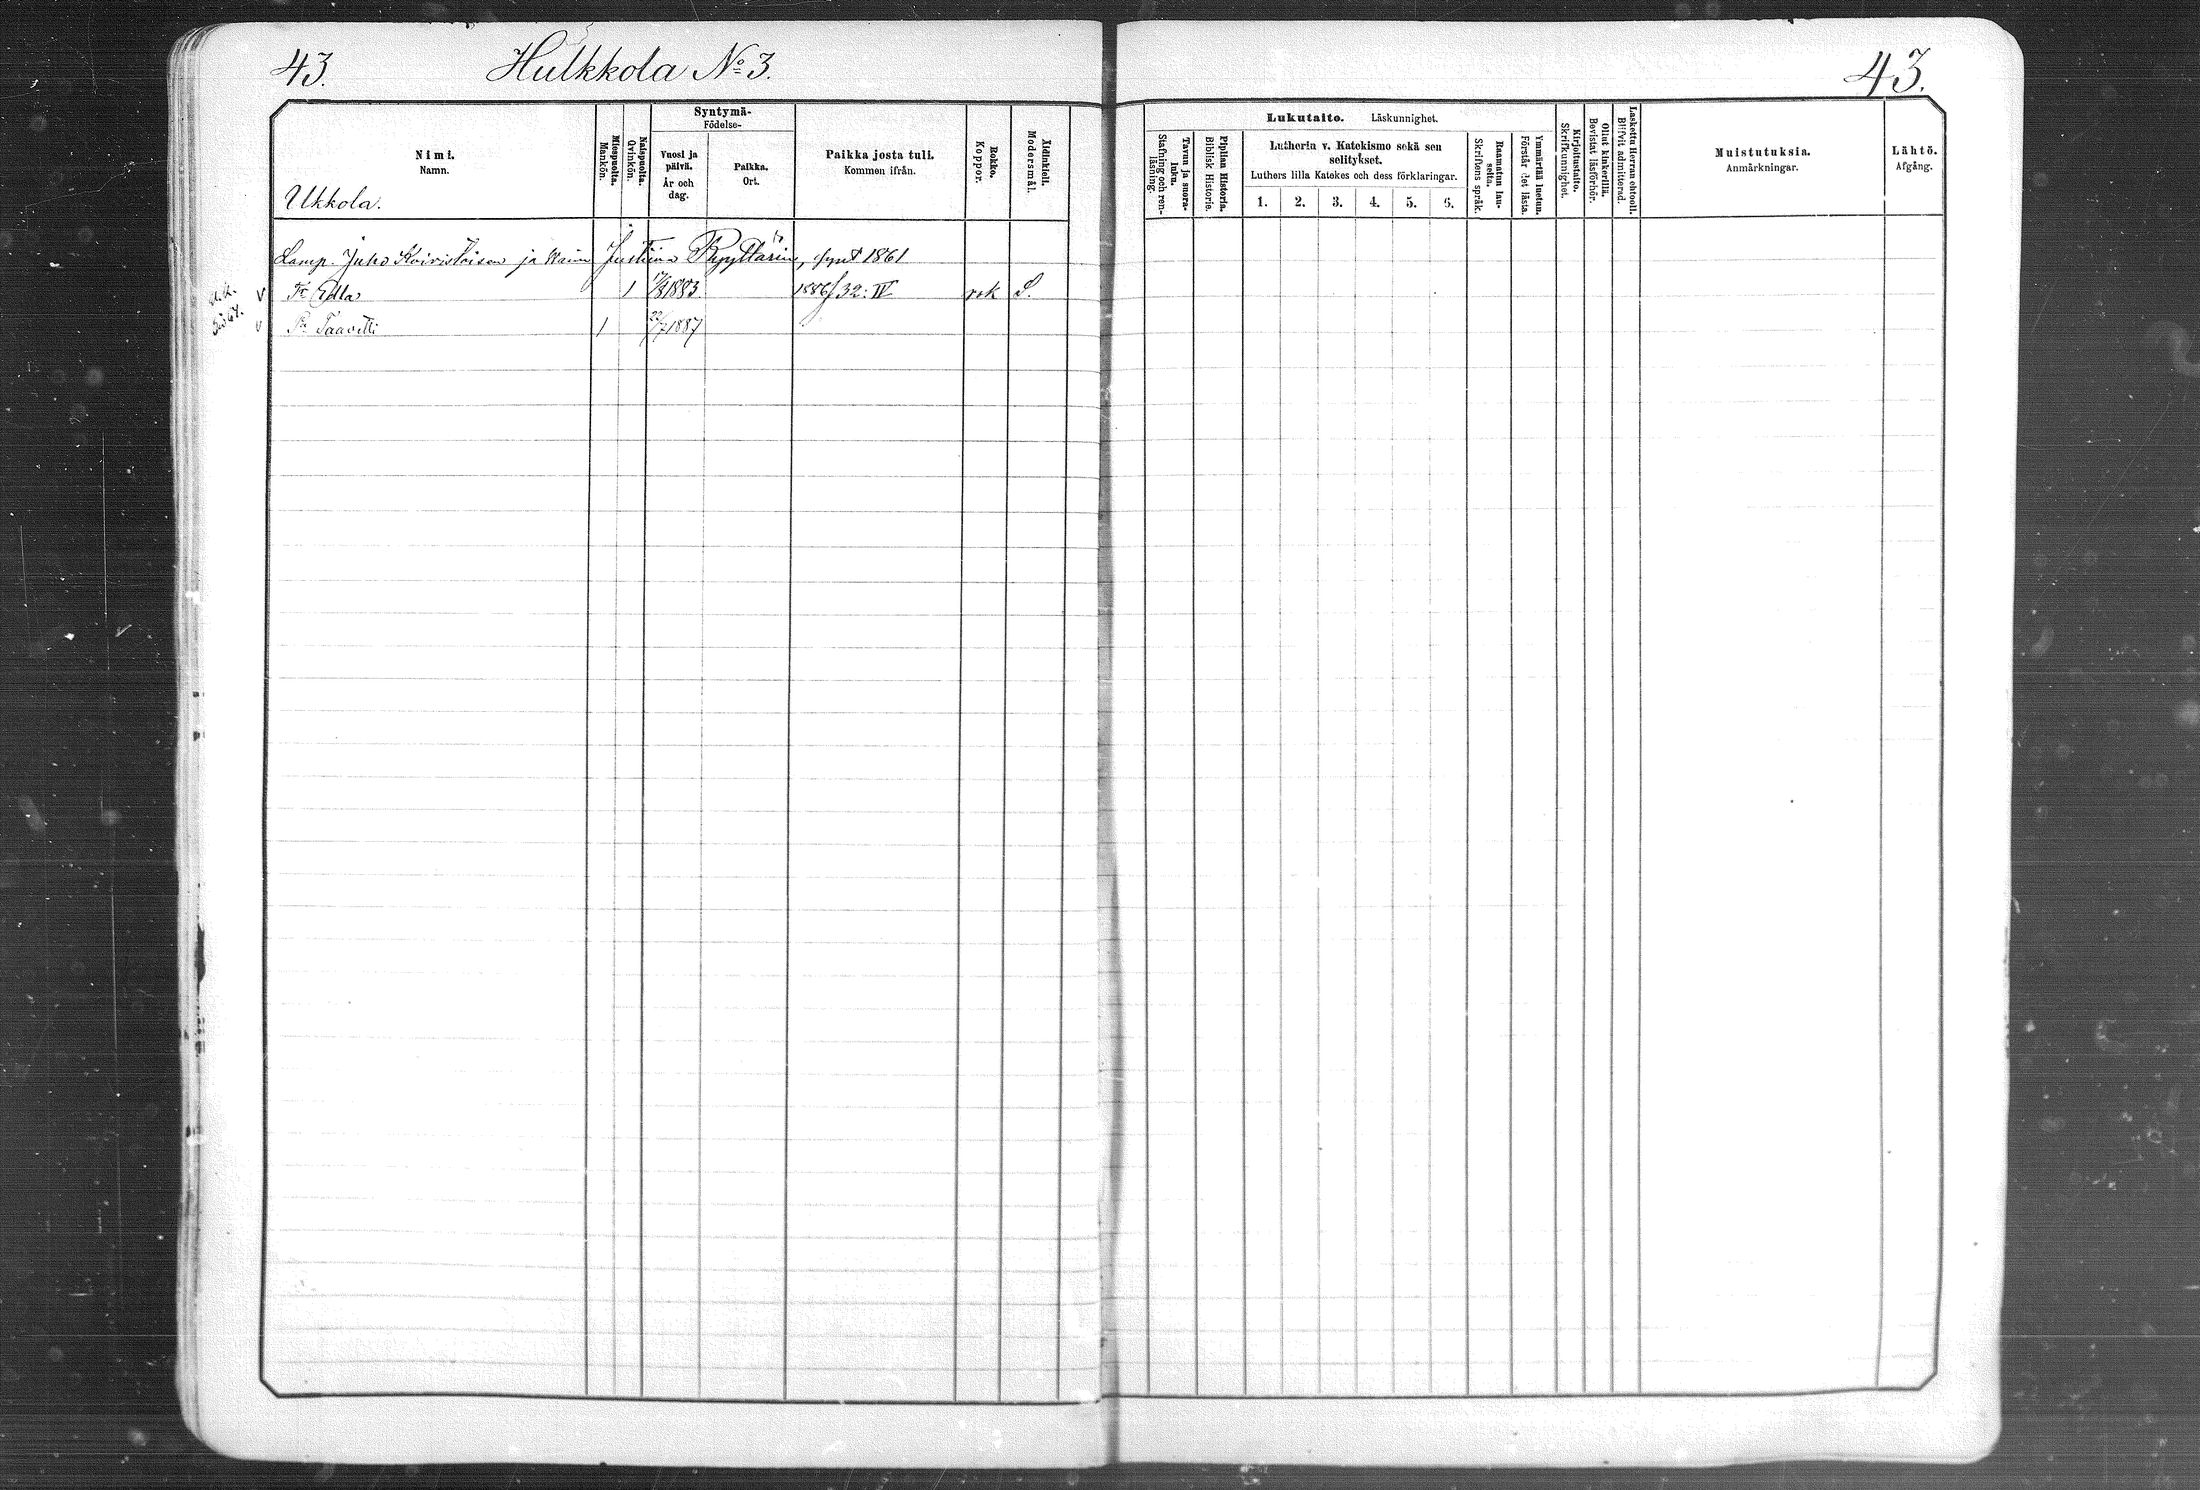 43. Hulkkola No 3. 43.
Syntymä-
Födelse-
Nimi.
Namn.
Miespuolta.
Mankön.
Naispuolta.
Qvinkön.
Vuosi ja
päivä.
År och
dag.
Paikka.
Ort.
Paikka josta tuli.
Kommen ifrån.
Rokko.
Koppor.
Äidinkieli.
Modersmål.
Ukkola.
Lamp. Juho Koivistoisen ja Waim Justiina Ryyttärin, synt 1861
Tr Edla 1 17/8 1883 1886/32: IV rok S.
Pa Taavetti 1 22/7 1887
Lukutaito. Läskunnighet.
Tavun ja suora-
luku.
Stafning och ren-
läsning.
Piplian Historia.
Biblisk Historie.
Lutherin v. Katekismo sekä sen
selitykset.
Luthers lilla Katekes och dess förklaringar.
1. 2. 3. 4. 5. 6.
Raamatun lau-
seita.
Skriftens språk.
Ymmärtää luetun.
Förstår det lästa.
Kirjoitustaito.
Skrifkunnighet.
Ollut kinkerillä.
Bevistat läsförhör.
Laskettu Herran ehtooll.
Blifvit admitterad.
Muistutuksia.
Anmärkningar.
Lähtö.
Afgång.